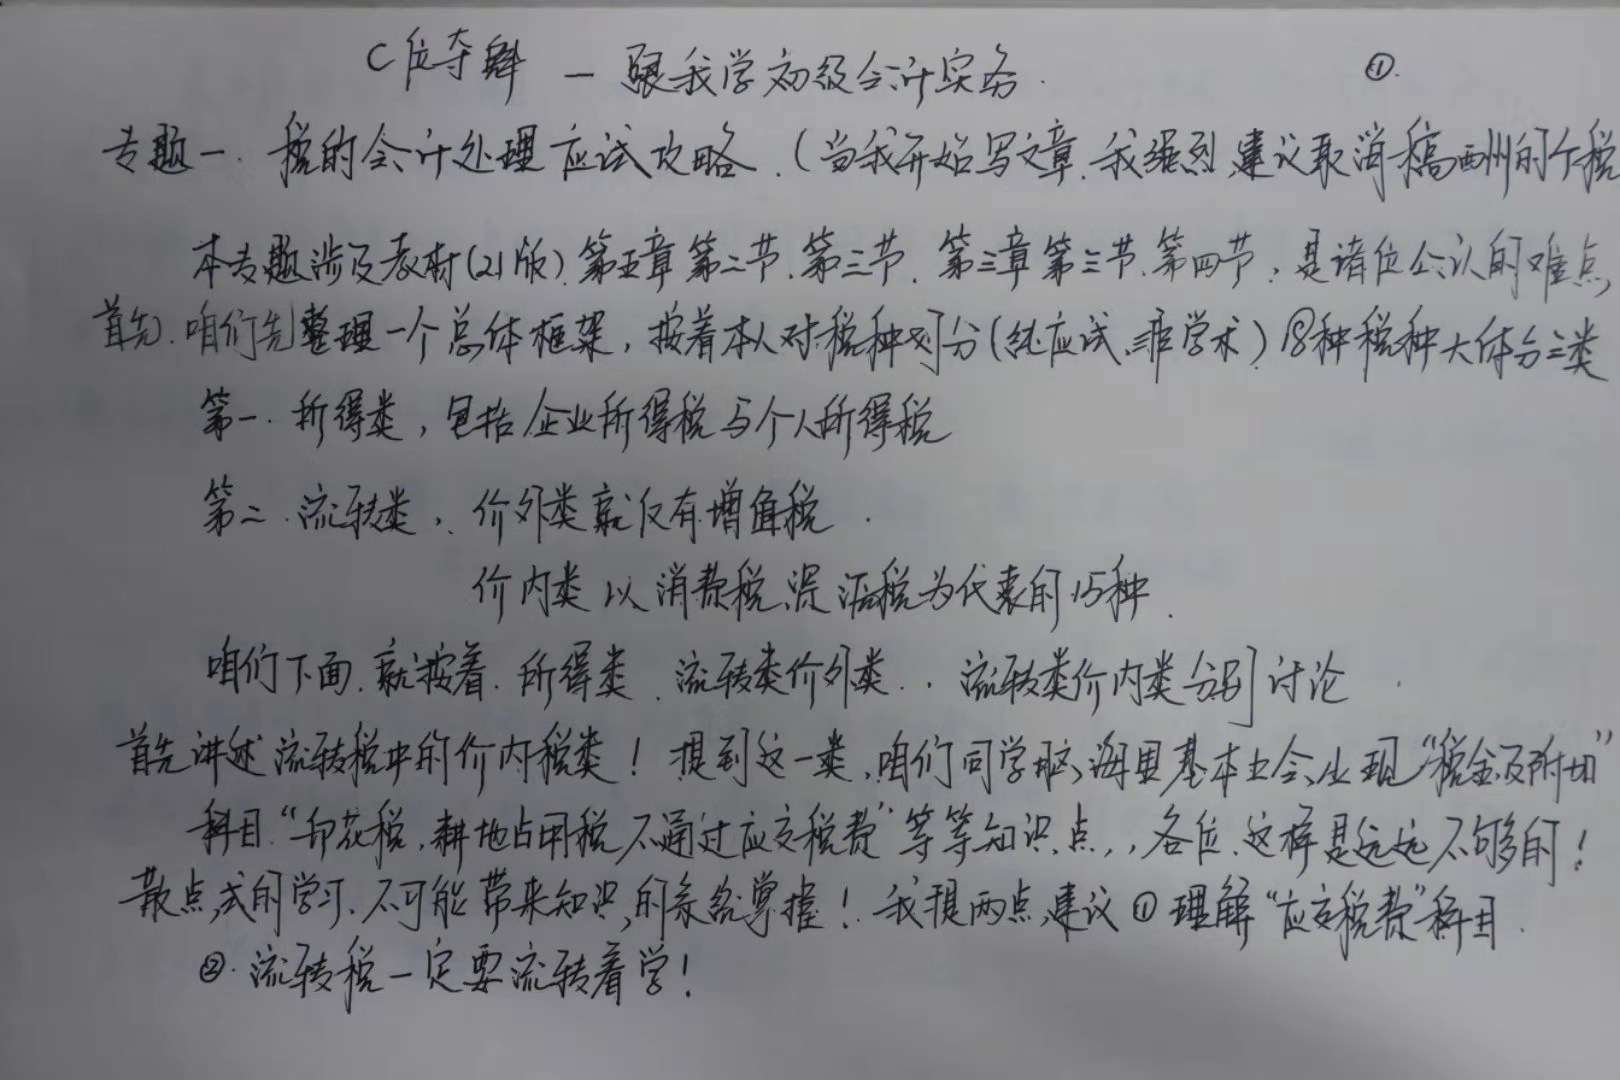 C位夺魁 — 跟我学初级会计实务. ①.
专题一. 税的会计处理应试攻略.(当我开始写文章.我强烈建议取消稿酬的个税
本专题涉及教材(21版).第五章第二节.第三节.第三章第三节.第四节,是诸位公认的难点,
首先.咱们先整理一个总体框架,按着本人对税种划分(纯应试、非学术)18种税种大体分三类
第一.所得类,包括企业所得税与个人所得税
第二.流转类,价外类就仅有增值税.
价内类以消费税、资源税为代表的15种.
咱们下面.就按着.所得类.流转类价外类..流转类价内类分别讨论.
首先讲述流转税中的价内税类!提到这一类,咱们同学脑海里基本上会出现"税金及附加"
科目."印花税,耕地占用税不通过应交税费"等等知识点,,各位.这样是远远不够的!
散点式的学习.不可能带来知识的系统掌握!我提两点建议①理解"应交税费"科目.
②.流转税一定要流转着学!